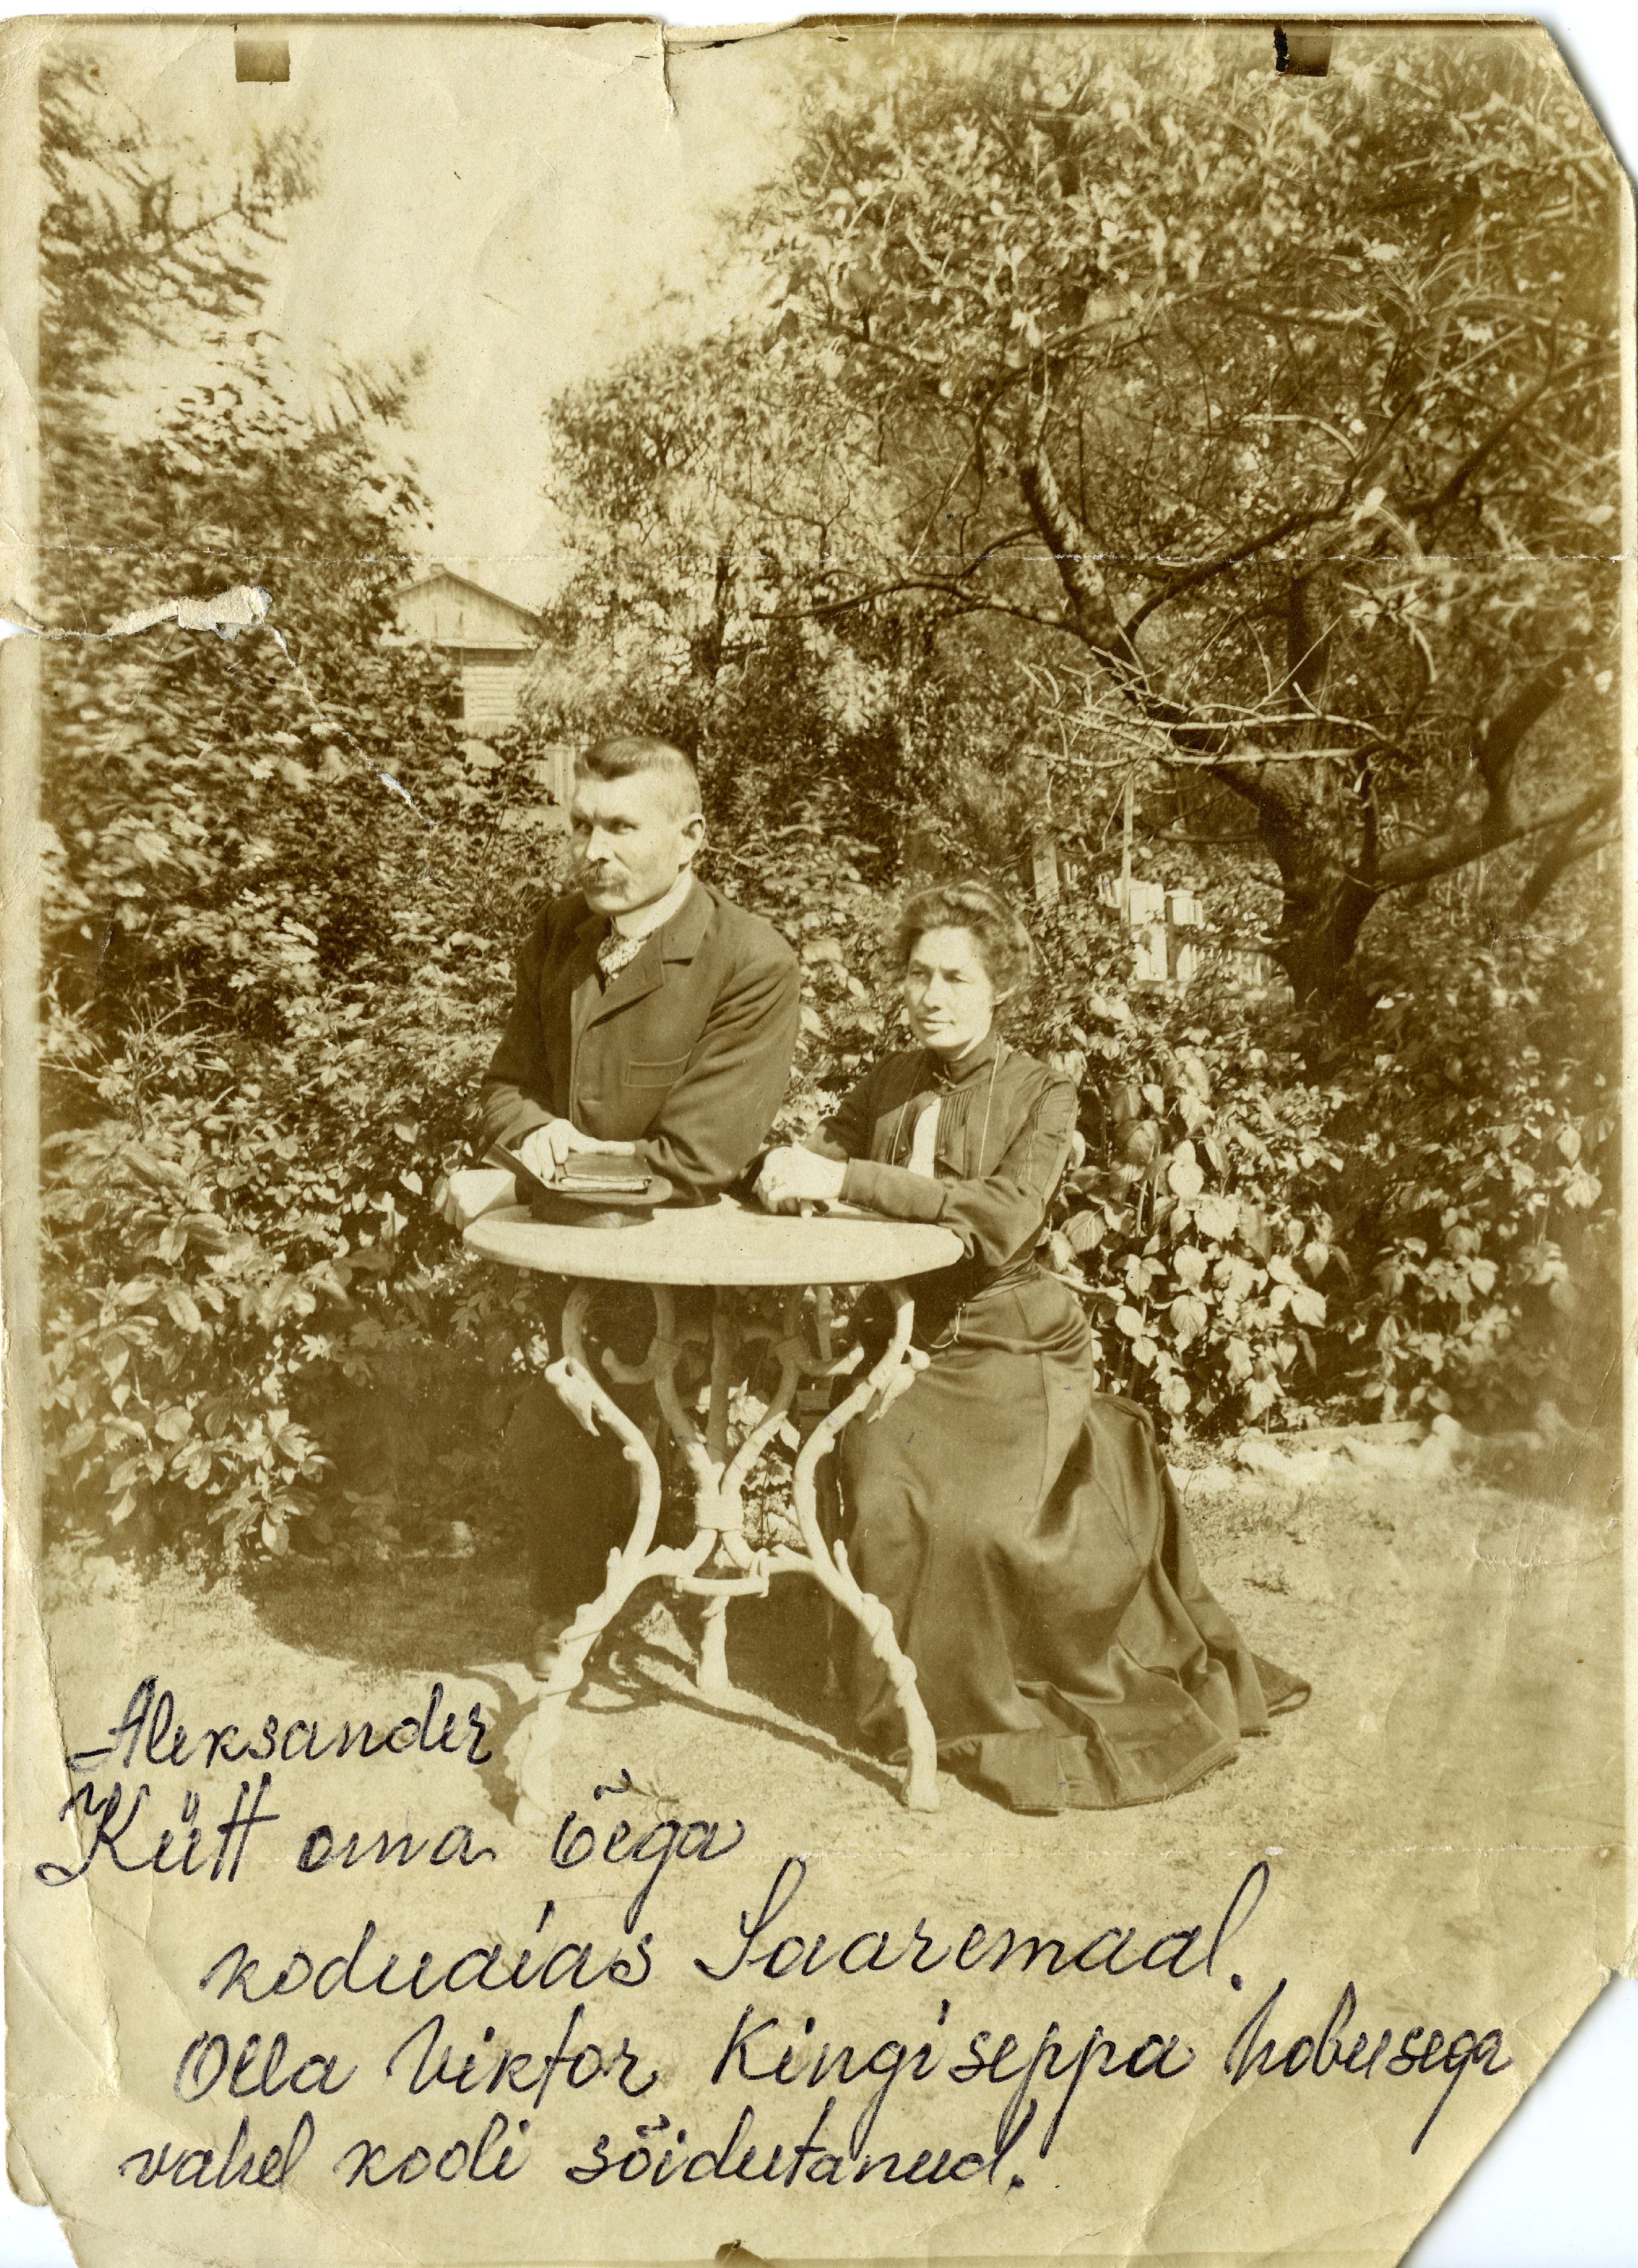 Aleksander
Kütt oma õega
koduaias Saaremaal.
Olla Viktor Kingiseppa hobusega
vahel kooli sõidutanud.